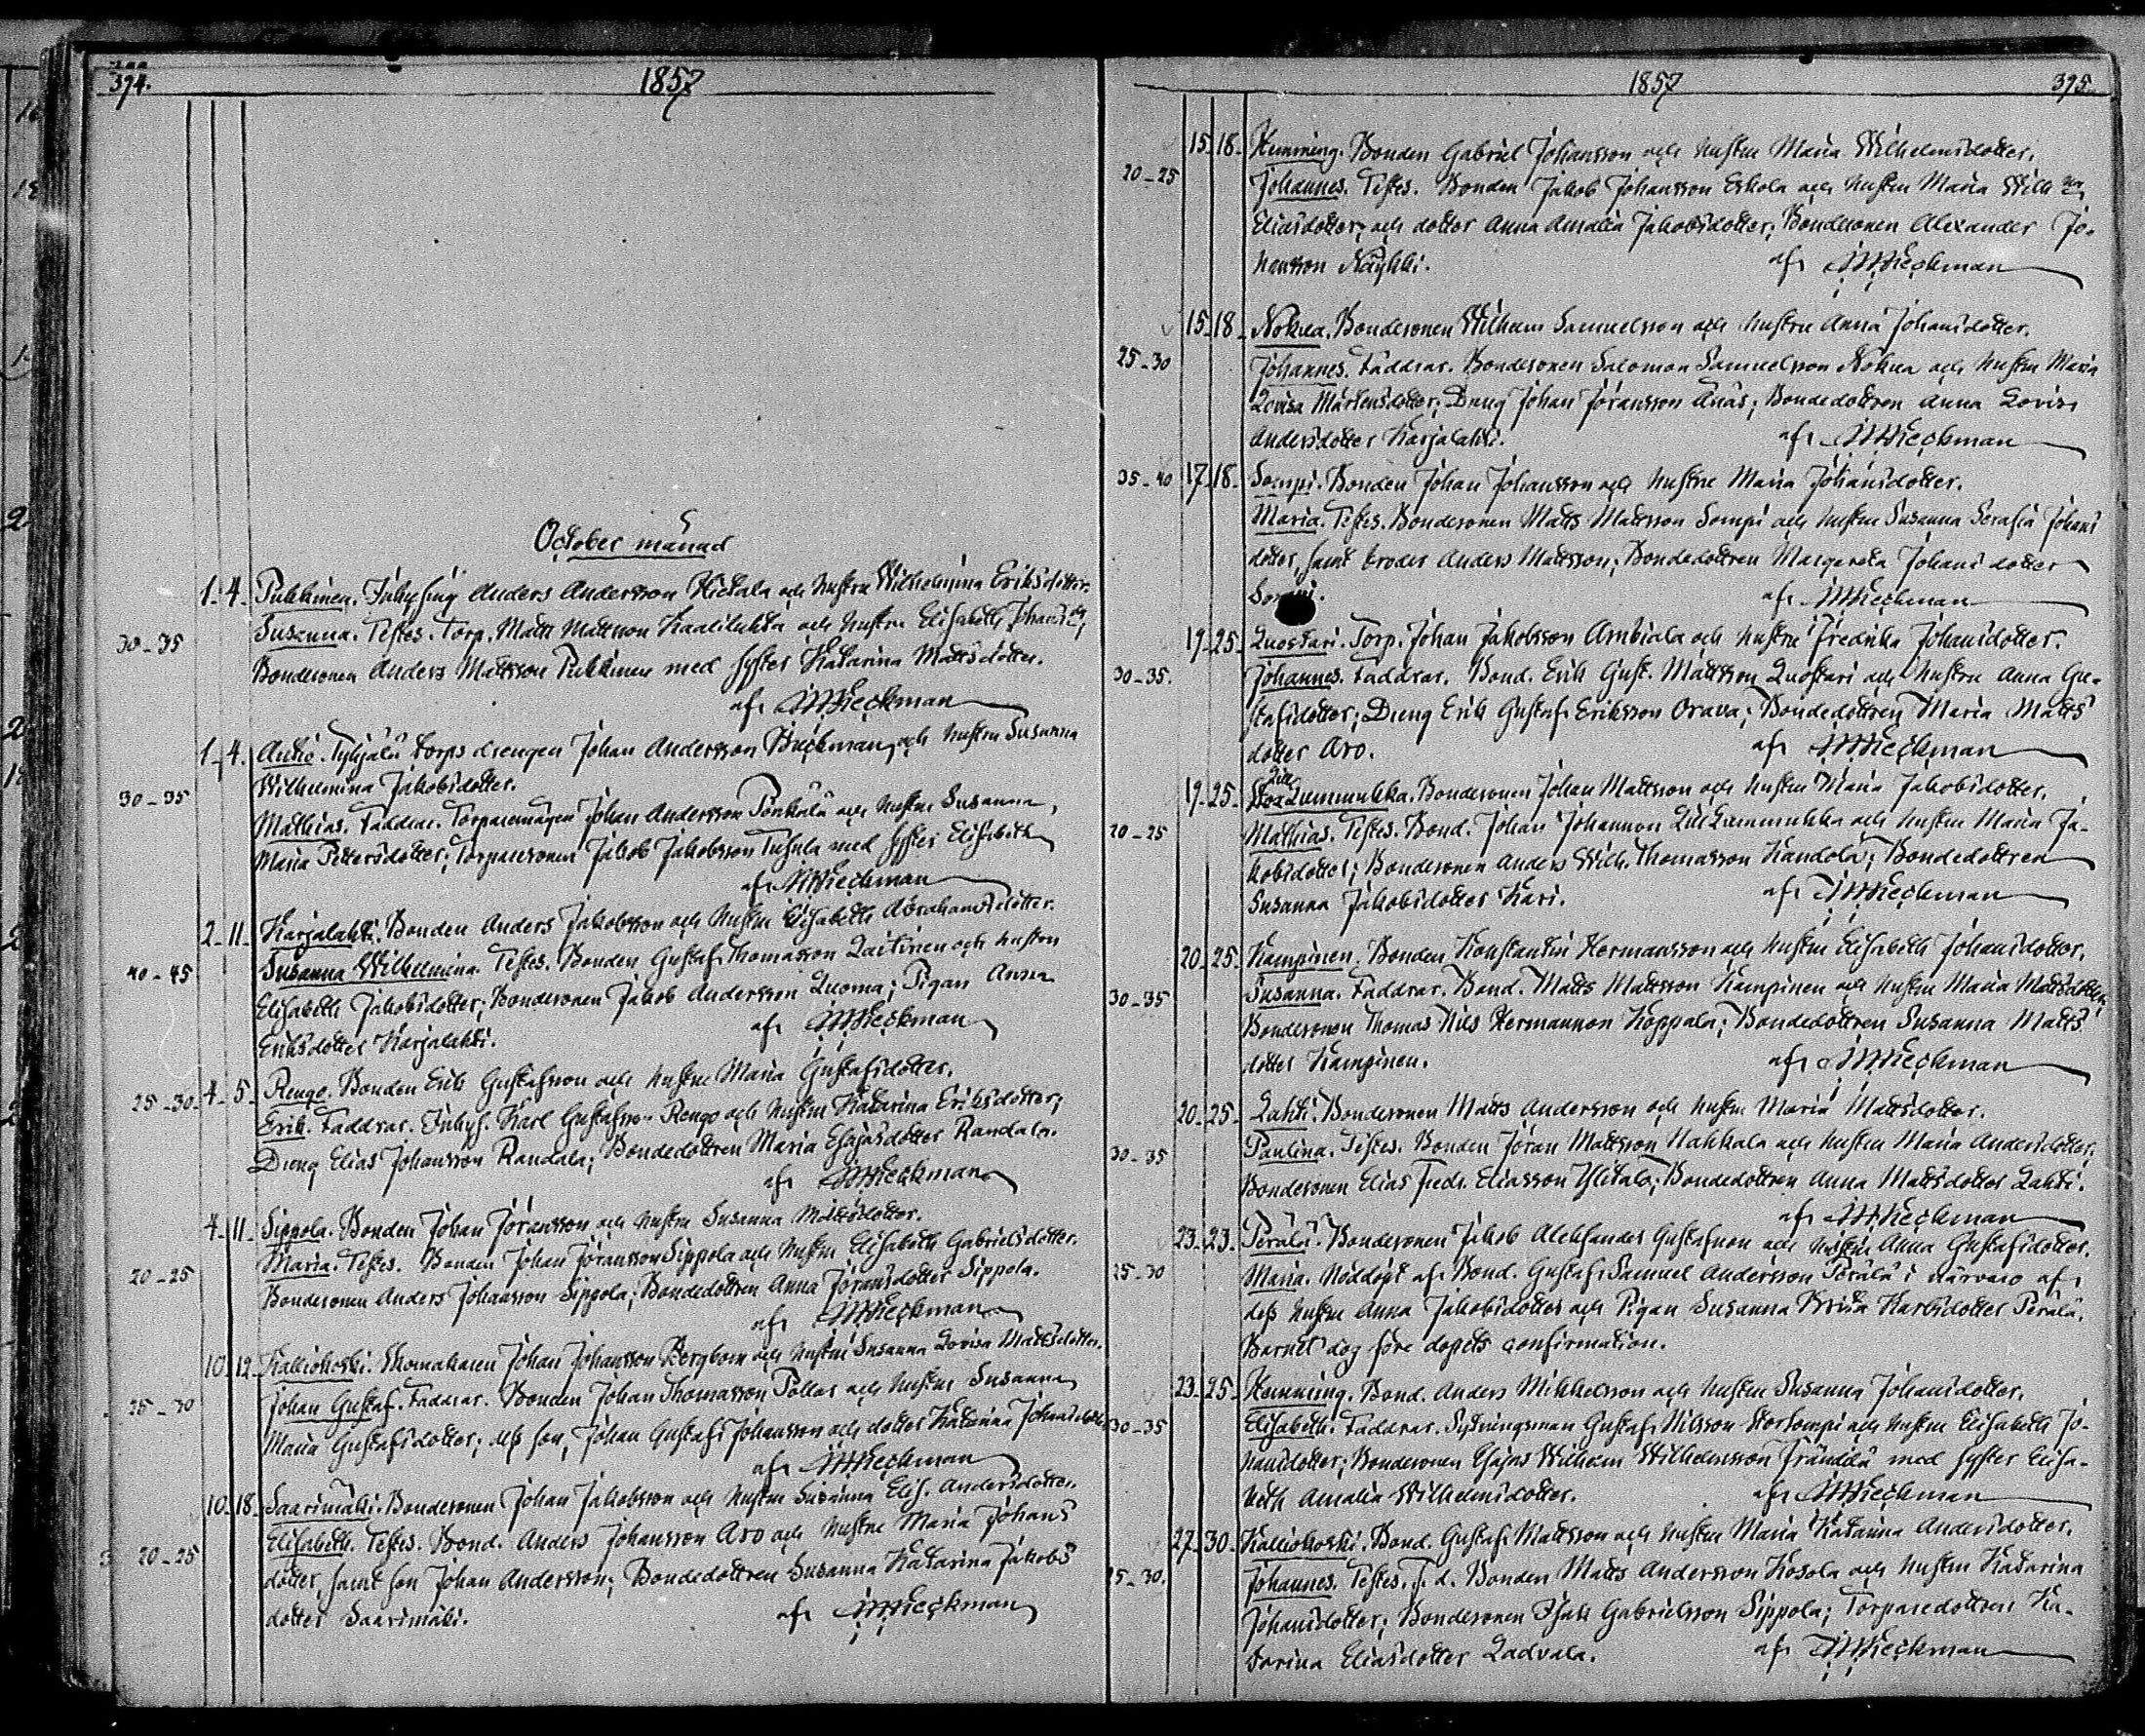 394.
1857
October månad
1. 4. Pukkinen. Inhysing Anders Andersson Hietala och hustru Wilhelmina Eriksdotter.
30-35 Susanna. Testes. Torp. Matts Mattsson Kaalilukta och hustru Elisabeth Johansd:r,
Bondesonen Anders Mattsson Pukkinen med syster Katarina Mattsdotter.
af MWieckman
1. 4. Autio. Tyhjälä torps drengen Johan Andersson Brickman och hustru Susanna
30-35 Wilhelmina Jakobsdotter.
Mathias. Faddrar. Torparemågen Johan Andersson Ponkala och hustru Susanna
Maria Pettersdotter; Torparesonen Jakob Jakobsson Tusula med syster Elisabeth
af MWieckman
2. 11. Karjalahti. Bonden Anders Jakobsson och hustru Elisabeth Abrahamsdotter.
40-45 Susanna Wilhelmina. Testes. Bonden Gustaf Thomasson Laitinen och hustru
Elisabeth Jakobsdotter; Bondesonen Jakob Andersson Luoma; Pigan Anna
Eriksdotter Karjalahti. af MWieckman
25-30 4. 5. Rengo. Bonden Erik Gustafsson och hustru Maria Gustafsdotter.
Erik. Faddrar. Inhys. Karl Gustafsson Rengo och hustru Katarina Eriksdotter;
Dreng Elias Johansson Randala; Bondedottren Maria Esajasdotter Randala.
af MWieckman
4. 11. Sippola. Bonden Johan Jöransson och hustru Susanna Mattsdotter.
20-25 Maria. Testes. Bonden Johan Jöransson Sippola och hustru Elisabeth Gabrielsdotter.
Bondesonen Anders Johansson Sippola; Bondedottren Anna Jöransdotter Sippola.
af MWieckman
10. 12. Kalliokoski. Skomakaren Johan Johansson Bergbom och hustru Susanna Lovisa Mattsdotter.
25-30 Johan Gustaf. Faddrar. Bonden Johan Thomasson Pollas och hustru Susanna
Maria Gustafsdotter; dess son, Johan Gustaf Johansson och dotter Katarina Johansdotter,
af MWieckman
10. 18. Saarimäki. Bondesonen Johan Jakobsson och hustru Susanna Elis. Andersdotter.
20-25 Elisabeth. Testes. Bond. Anders Johansson Aro och hustru Maria Johans
dotter, samt son Johan Andersson; Bondedottren Susanna Katarina Jakobs
dotter Saarimäki. af MWieckman
1857 395.
15. 18. Hemming. Bonden Gabriel Johansson och hustru Maria Wilhelmsdotter.
20-25 Johannes. Testes. Bonden Jakob Johansson Eskola och hustru Maria Wilh:na
Eliasdotter; och dotter Anna Amalia Jakobsdotter; Bondesonen Alexander Jo-
hansson Näykki. af MWieckman
15. 18. Nokua. Bondesonen Wilhelm Samuelsson och hustru Anna Johansdotter.
25-30 Johannes. Faddrar. Bondesonen Salomon Samuelsson Nokua och hustru Maria
Lovisa Mårtensdotter; Dreng Johan Jöransson Änäs; Bondedottren Anna Lovisa
Andersdotter Karjalahti. af MWieckman
35-40 17. 18. Sompi. Bonden Johan Johansson och hustru Maria Johansdotter.
Maria. Testes. Bondesonen Matts Mattsson Sompi och hustru Susanna Serafia Johans
dotter, samt broder Anders Mattsson; Bondedottren Margareta Johans dotter
Sompi. af MWieckman
19. 25. Luostari. Torp. Johan Jakobsson Ambiala och hustru Fredrika Johansdotter.
30-35. Johannes. Faddrar. Bond. Erik Gust. Mattsson Luostari och hustru Anna Gu-
stafsdotter; Dreng Erik Gustaf Eriksson Orava; Bondedottren Maria Matts
dotter Aro. af MWieckman
19. 25. Lill Lummukka. Bondesonen Johan Mattsson och hustru Maria Jakobsdotter.
20-25 Mathias. Testes. Bond. Johan Johansson Lill Lummukka och hustru Maria Ja-
kobsdotter; Bondesonen Anders Wilh. Thomasson Kandola; Bondedottren
Susanna Jakobsdotter Kari. af MWieckman
20. 25. Kampinen. Bonden Konstantin Hermansson och hustru Elisabeth Johansdotter.
30-35 Susanna. Faddrar. Bond. Matts Mattsson Kampinen och hustru Maria Mattsdotter,
Bondesonen Thomas Nils Hermansson Koppala; Bondedottren Susanna Matts
dotter Kampinen. af MWieckman
20. 25. Lahti. Bondesonen Matts Andersson och hustru Maria Mattsdotter.
30-35 Paulina. Testes. Bonden Jöran Mattsson Hakkala och hustru Maria Andersdotter;
Bondesonen Elias Fredr. Eliasson Ylitalo; Bondedottren Anna Mattsdotter Lahti.
af MWieckman
23. 23. Perälä. Bondesonen Jakob Aleksander Gustafsson och hustru Anna Gustafsdotter.
25-30 Maria. Nöddöpt af Bond. Gustaf Samuel Andersson Perälä i närvaro af
dess hustru Anna Jakobsdotter och Pigan Susanna Brita Karlsdotter Perälä.
Barnet dog före dopets confirmation.
23. 25. Hemming. Bond. Anders Mikkelsson och hustru Susanna Johansdotter.
30-35 Elisabeth. Faddrar. Sexningsman Gustaf Nilsson Storsompi och hustru Elisabeth Jo-
hansdotter; Bondesonen Esajas Wilhelm Wilhelmsson Frändilä med syster Elisa-
beth Amalia Wilhelmsdotter. af MWieckman
27. 30. Kalliokoski. Bond. Gustaf Mattsson och hustru Maria Katarina Andersdotter.
25-30. Johannes. Testes. F. d. Bonden Matts Andersson Kosola och hustru Katarina
Johansdotter; Bondesonen Isak Gabrielsson Sippola; Torparedottren Ka-
tarina Eliasdotter Ladvala. af MWieckman